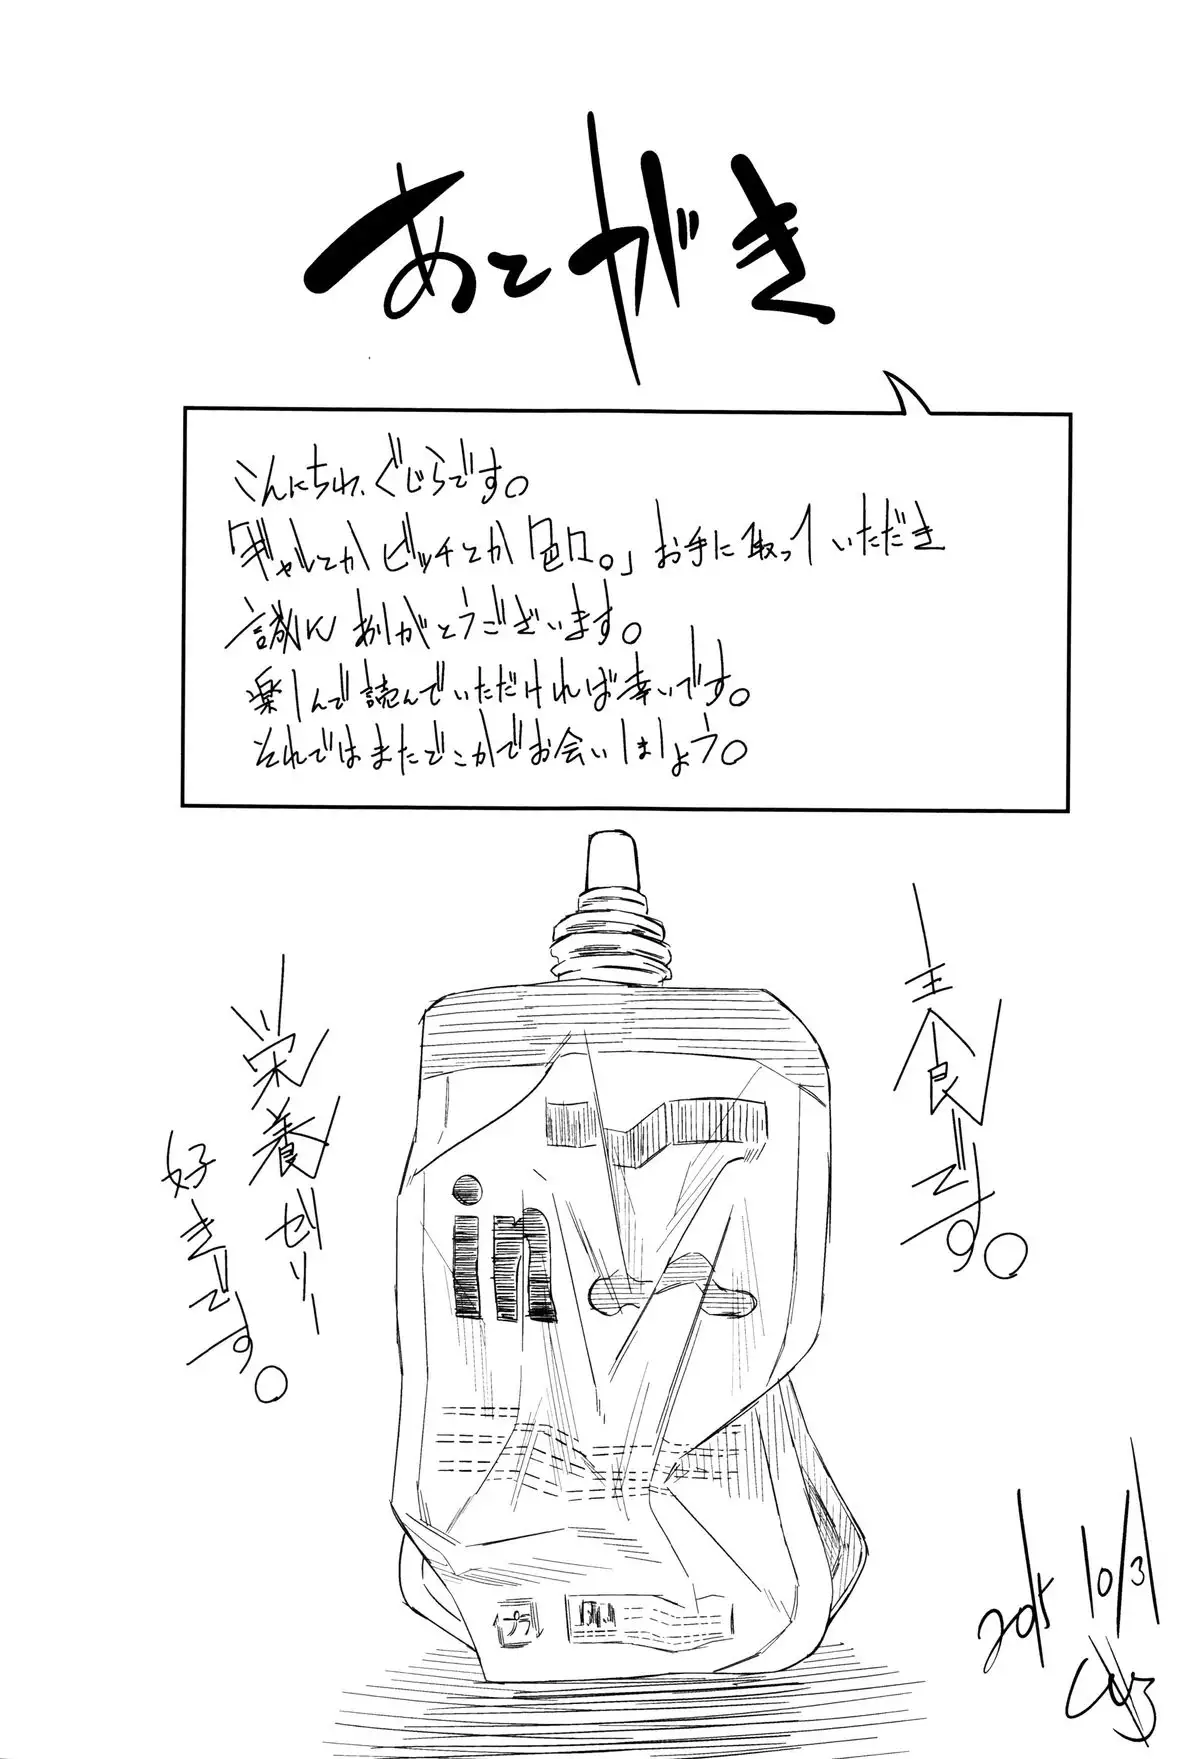 あとがき
こんにちわ、ぐじらです。
「ギャルとかビッチとか色口。」お手に取っていただき
誠にありがとうございます。
楽しんで読んでいただければ幸いです。
それではまたどこかでお会いしましょう。
主食です。
栄養ゼリー
好きです。
in
プラ
2015 10/31